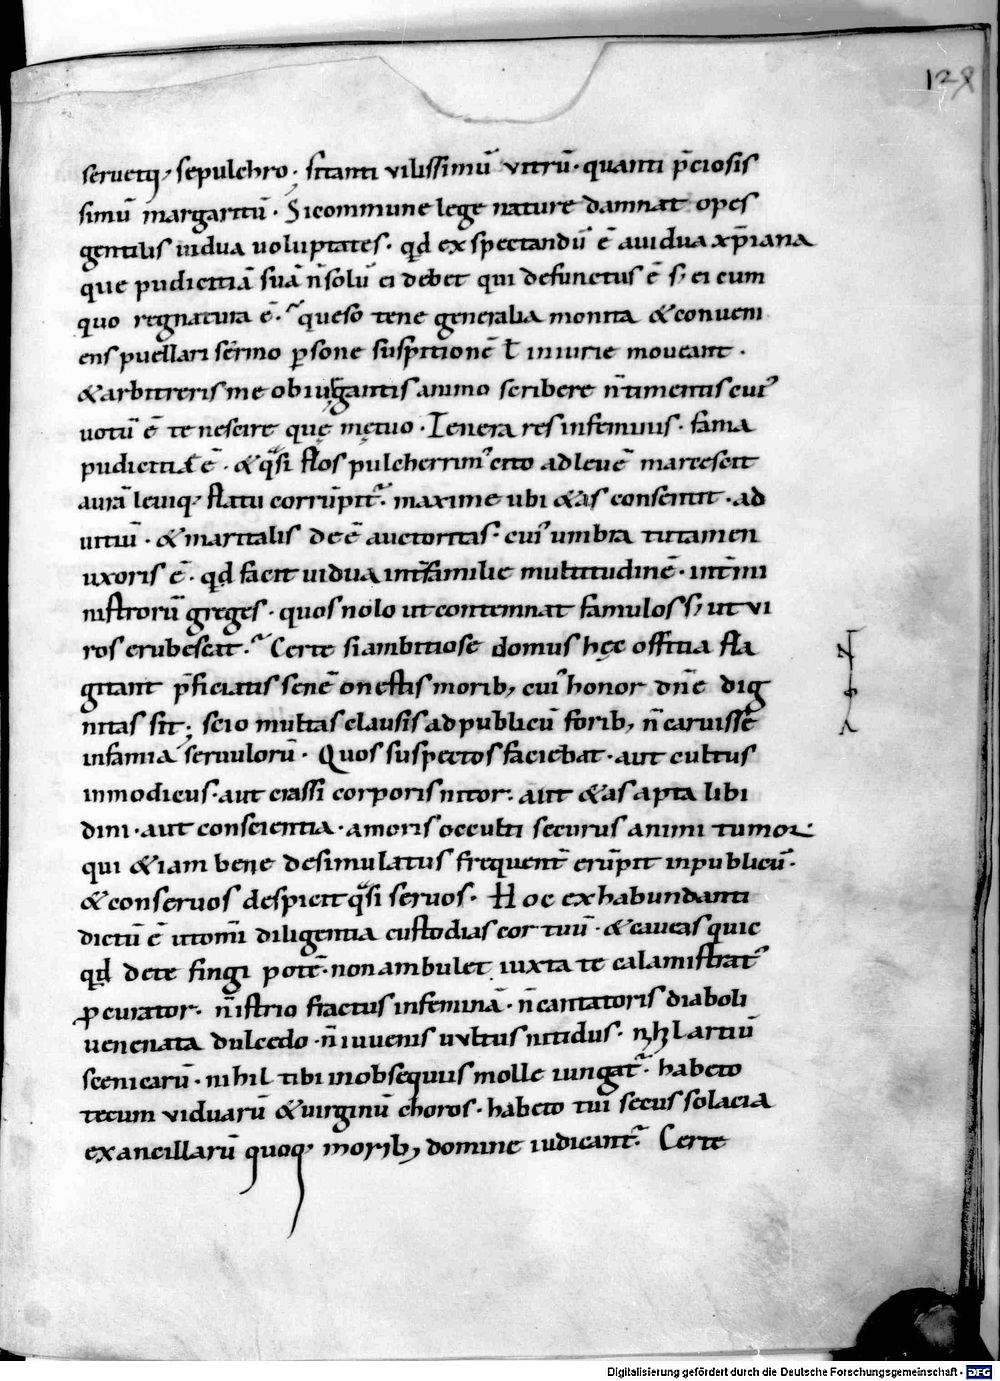 128
seruetq; sepulchro. sitanti vilissimū vitrū. quanti p̄ciosis
simū margaritū. Sicommune lege nature damnat opes
gentilis uidua uoluptates. qd̄ exspectandū ē auidua xp̄iana
que pudicitiā suā n̄solū ei debet qui defunctus ē s; ei cum
quo regnatura ē. queso tene generalia monita &conueni
ens puellari sermo psone suspitionē ł iniurie moueant.
&arbitreris me obiurgantis animo scribere n̄timentis cui'
uotū ē te nescire quę mętuo. Tenera res infeminis. fama
pudicitiæ ē. &q̄si flos pulcherrim' cito adleuē marcescit
aurā leuiq; flatu corrūpit'. maxime ubi &as consentit. ad
uitiū. & maritalis deē auctoritas. cui' umbra tutamen
uxoris ē. qd̄ facit uidua int̄familie multitudinē. int̄mi
nistrorū greges. quos nolo ut contemnat famulos s; ut vi
ros erubescat. Certe siambitiose domus hęc offitia fla
gitant p̄ficiatis senē onestis morib; cui' honor dn̄e dig
nitas sit; scio multas clausis adpublicū forib; n̄ caruisse
infamia seruulorū. Quos suspectos faciebat. aut cultus
inmodicus. aut crassi corporis nitor. aut &as apta libi
dini. aut conscientia. amoris occulti securus animi tumor
qui &iam bene desimulatus frequent̄ erūpit inpublicū.
&conseruos despicit q̄si seruos. Hoc exhabundanti
dictū ē utom̄i diligentia custodias cor tuū. &caueas quic
qd̄ dete fingi potē. non ambulet iuxta te calamistrat'
pcurator. n̄istrio fractus infeminā. n̄ cantatoris diaboli
uenenata dulcedo. n̄iuuenis uultus nitidus. nhł artiū
scenicarū. nihil tibi inobsequiis molle iungat'. habeto
tecum viduarū &uirginū choros. habeto tui secus solacia
exancillarū quoq; morib; domine iudicant'. Certe
Digitalisierung gefördert durch die Deutsche Forschungsgemeinschaft - DFG